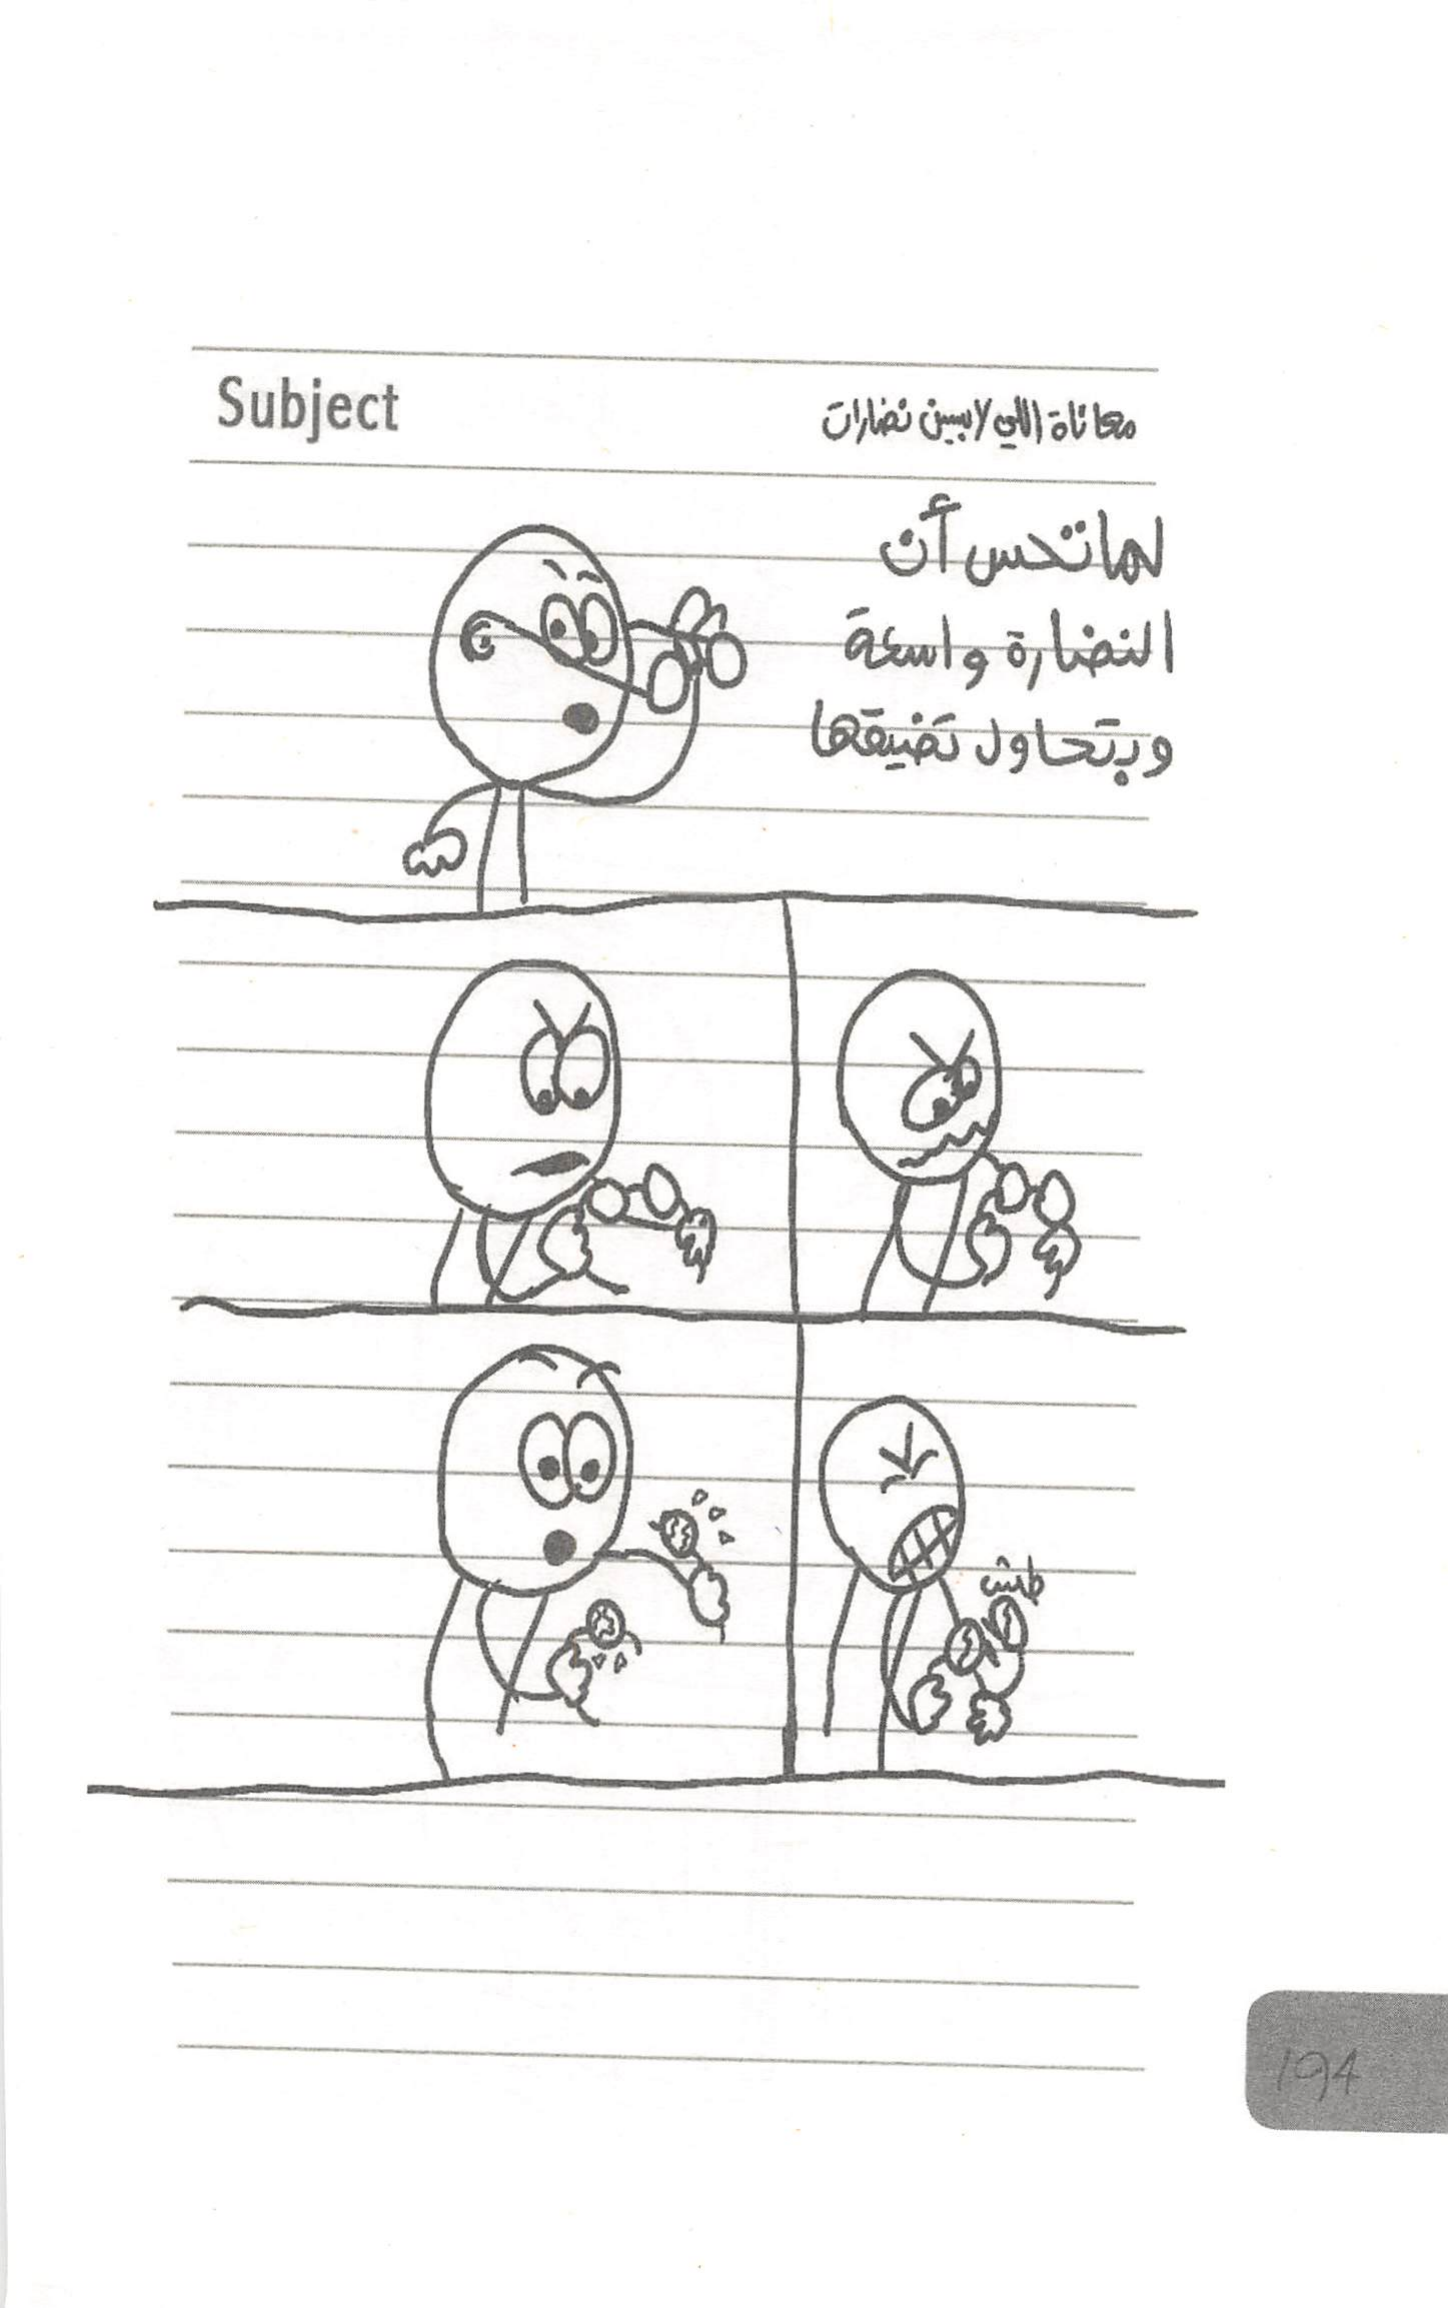 Subject
معاناة اللي لابسين نضارات
لما تحس أن
النضارة واسعة
وبتحاول تضيقها
طش
194